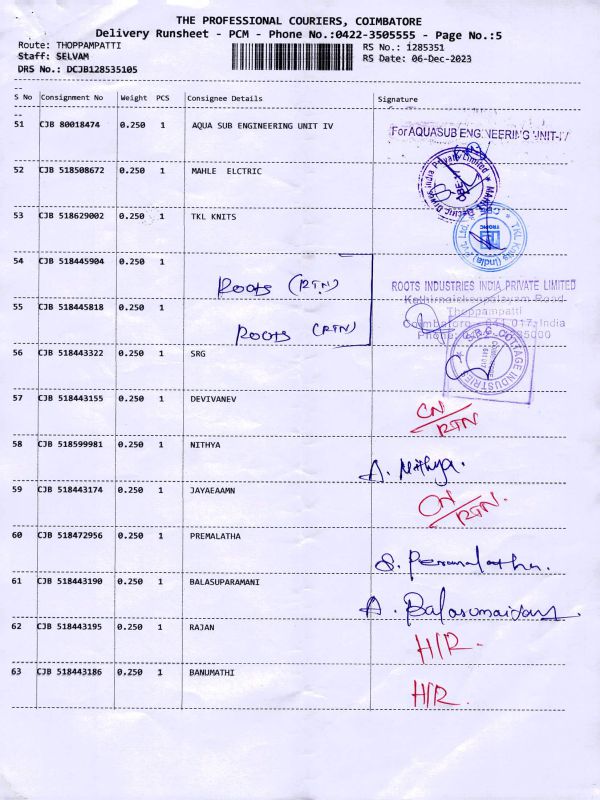 THE PROFESSIONAL COURIERS, COIMBATORE
Delivery Runsheet - PCM - Phone No.:0422-3505555 - Page No.:5
Route: THOPPAMPATTI RS No.: 1285351
Staff: SELVAM RS Date: 06-Dec-2023
DRS No.: DCJB128535105
S No Consignment No Weight PCS Consignee Details Signature
51 CJB 80018474 0.250 1 AQUA SUB ENGINEERING UNIT IV
For AQUASUB ENGINEERING UNIT-IV
52 CJB 518508672 0.250 1 MAHLE ELCTRIC
53 CJB 518629002 0.250 1 TKL KNITS
TKL Knits (India) Pvt. Ltd.
54 CJB 518445904 0.250 1 ROOTS (RTN)
ROOTS INDUSTRIES INDIA PRIVATE LIMITED
55 CJB 518445818 0.250 1 ROOTS (RTN)
Thoppampatti
56 CJB 518443322 0.250 1 SRG
S.R.G. COTTAGE INDUSTRIES
57 CJB 518443155 0.250 1 DEVIVANEV CN/RTN
58 CJB 518599981 0.250 1 NITHYA A. Nithya.
59 CJB 518443174 0.250 1 JAYAEAAMN CN/RTN.
60 CJB 518472956 0.250 1 PREMALATHA
61 CJB 518443190 0.250 1 BALASUPARAMANI
62 CJB 518443195 0.250 1 RAJAN H/R.
63 CJB 518443186 0.250 1 BANUMATHI H/R.